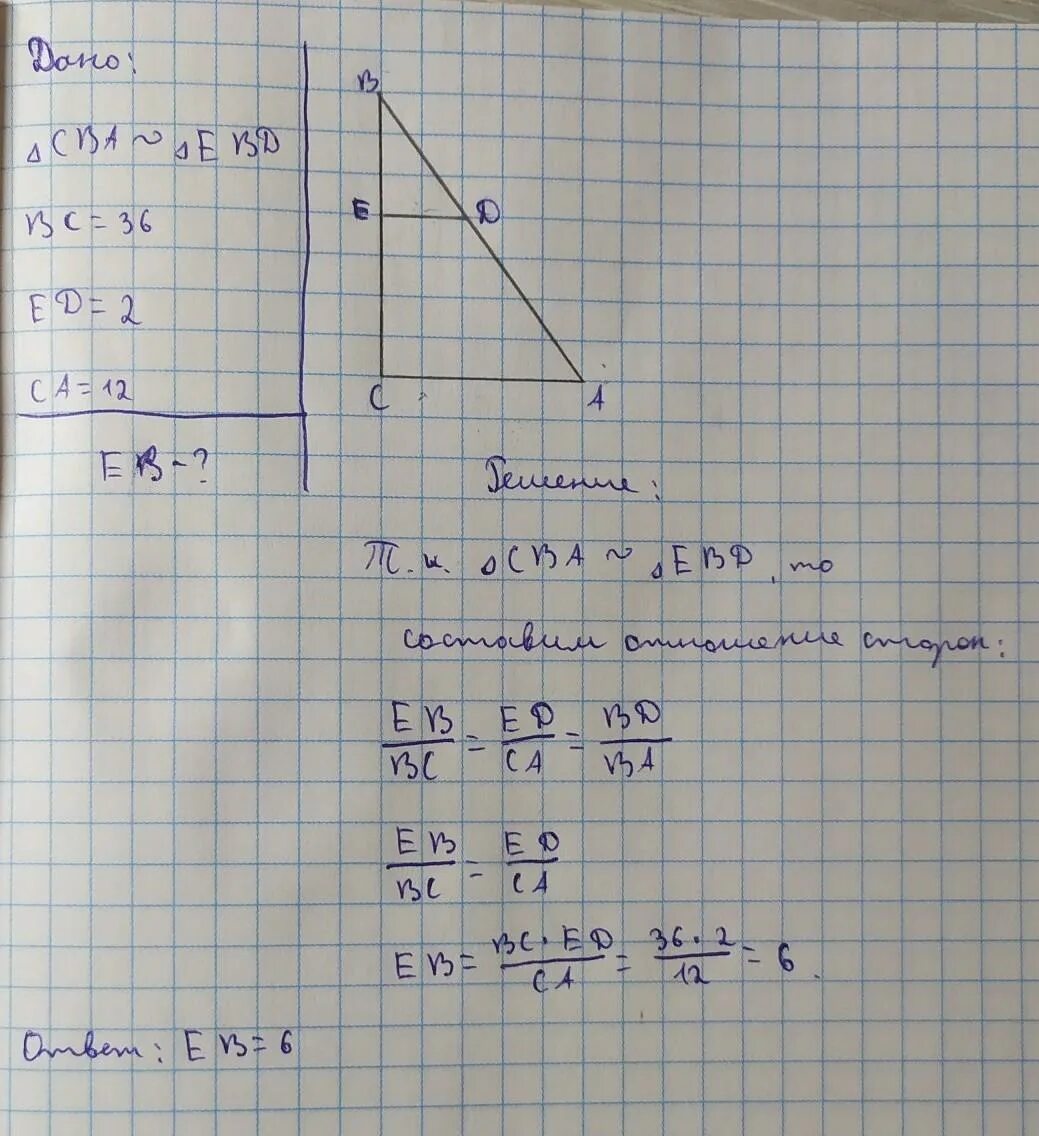 Дано:
△CBA ~ △EBD
BC = 36
ED = 2
CA = 12
EB - ?
B
E D
C A
Решение:
Т.к. △CBA ~ △EBD, то
составим отношение сторон:
EB/BC = ED/CA = BD/BA
EB/BC = ED/CA
EB = BC · ED/CA = 36 · 2/12 = 6.
Ответ: EB = 6